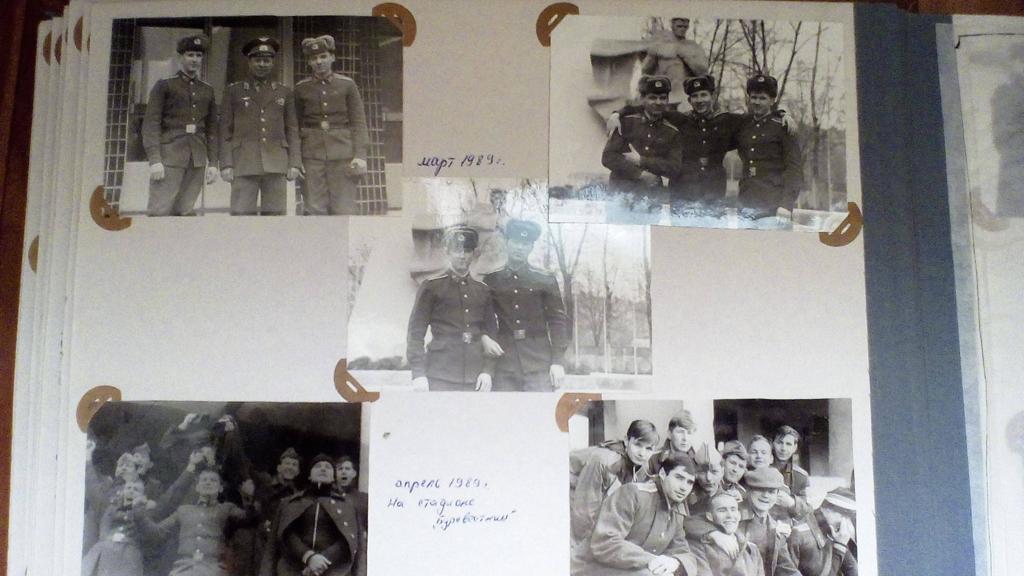 март 1989г.
апрель 1989г.
На стадионе
"Буревестник"